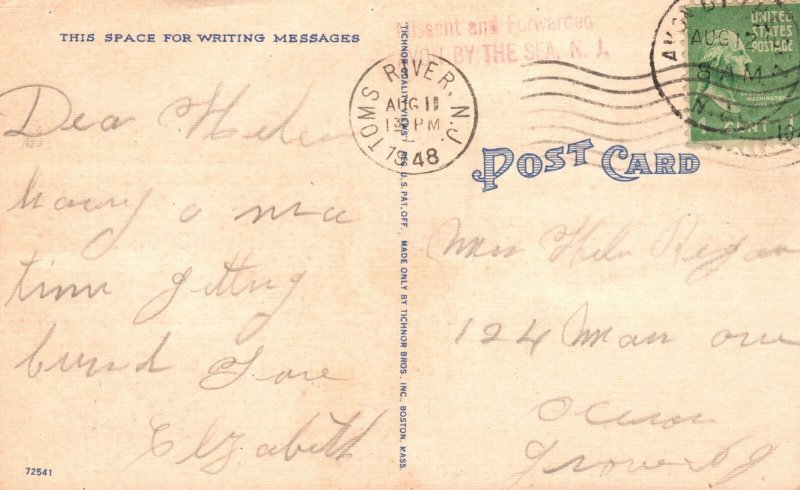 THIS SPACE FOR WRITING MESSAGES
Missent and Forwarded
AVON BY THE SEA, N. J.
TOMS RIVER, N.J.
AUG 11
PM
1948
AUG
8 AM
N.J.
UNITED
STATES
POSTAGE
WASHINGTON
1 CENT 1
POST CARD
TICHNOR QUALITY VIEWS REG. U.S. PAT. OFF. MADE ONLY BY TICHNOR BROS., INC., BOSTON, MASS.
Dea Helen
a
time getting
Love
Elizabeth
Helen
124 Main ave
Ocean
Grove
72541